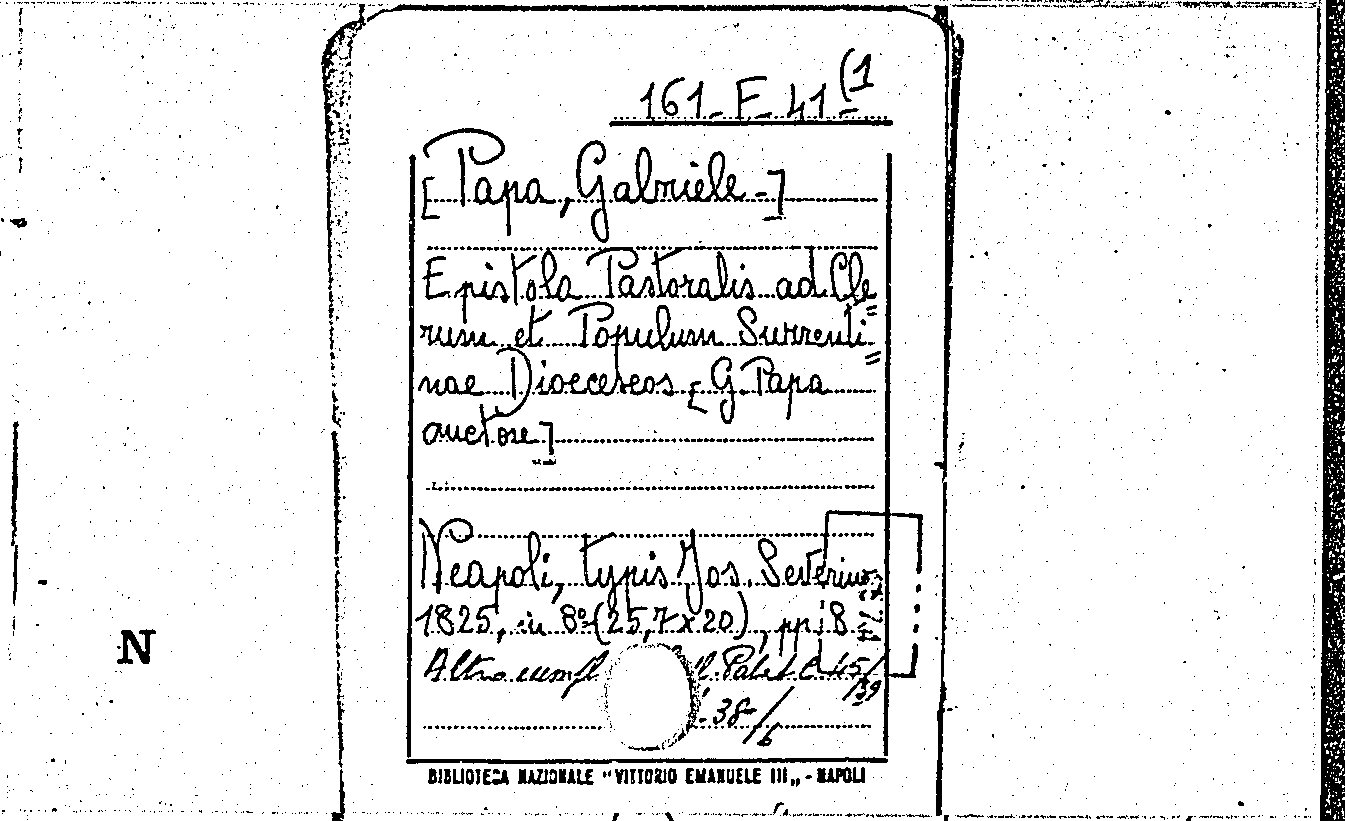 161-F-41(1
[Papa, Gabriele-]
Epistola Pastoralis ad Cle=
rum et Populum Surrenti=
nae Dioeceseos [G. Papa
auctore]
Neapoli, typis Jos. Severino,
1825, in 8º (25,7x20), pp. 8.
Altro
45/
/39
-38-/6
BIBLIOTECA NAZIONALE "VITTORIO EMANUELE III„ - NAPOLI
N